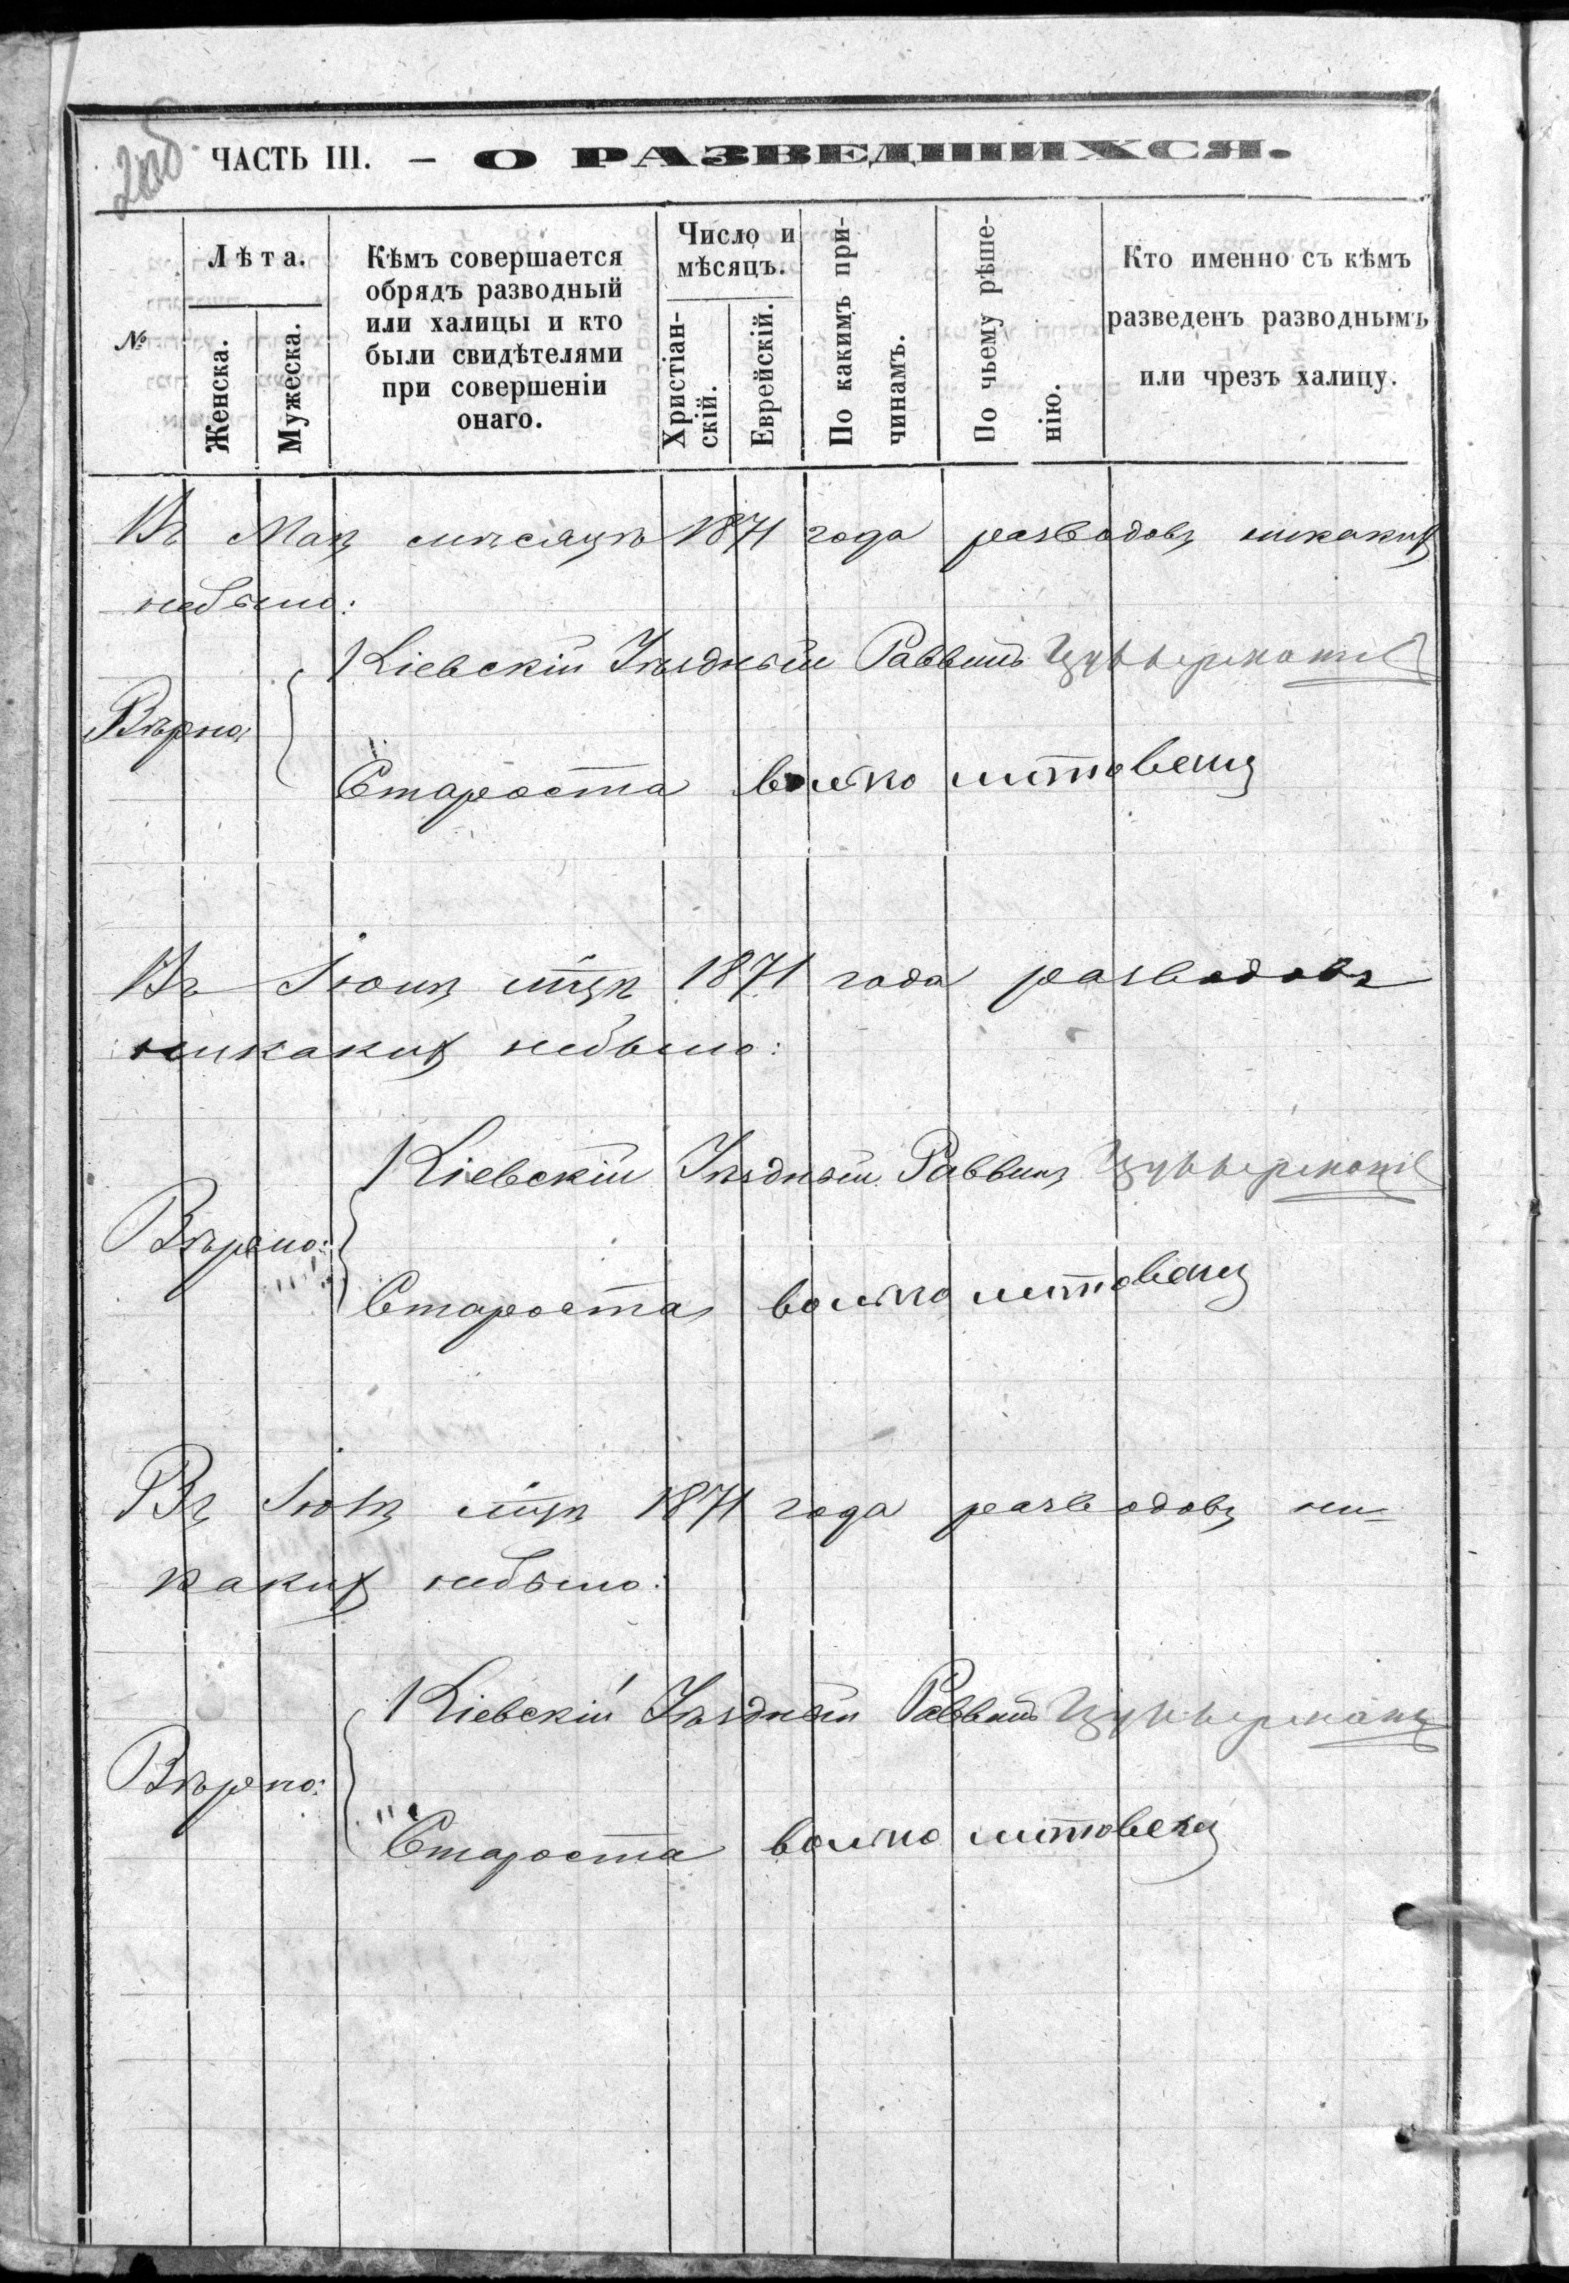 2об
ЧАСТЬ III. — О РАЗВЕДШИХСЯ.
№
Лѣта.
Женска.
Мужеска.
Кѣмъ совершается
обрядъ разводный
или халицы и кто
были свидѣтелями
при совершеніи
онаго.
Число и
мѣсяцъ.
Христіан-
скій.
Еврейскій.
По какимъ при-
чинамъ.
По чьему рѣше-
нію.
Кто именно съ кѣмъ
разведенъ разводнымъ
или чрезъ халицу.
Въ Маѣ мѣсяцѣ 1871 года разводовъ никакихъ
небыло:
Кіевскій Уѣздный Раввинъ Цуккерманъ
Вѣрно
Староста волько литовецъ
Въ Іюнѣ мцѣ 1871 года разводовъ
никакихъ небыло:
Кіевскій Уѣздный Раввинъ Цуккерманъ
Вѣрно:
Староста волько литовецъ
Въ Іюлѣ мцѣ 1871 года разводовъ ни-
какихъ небыло:
Кіевскій Уѣздный Раввинъ Цуккерманъ
Вѣрно:
Староста волько литовецъ